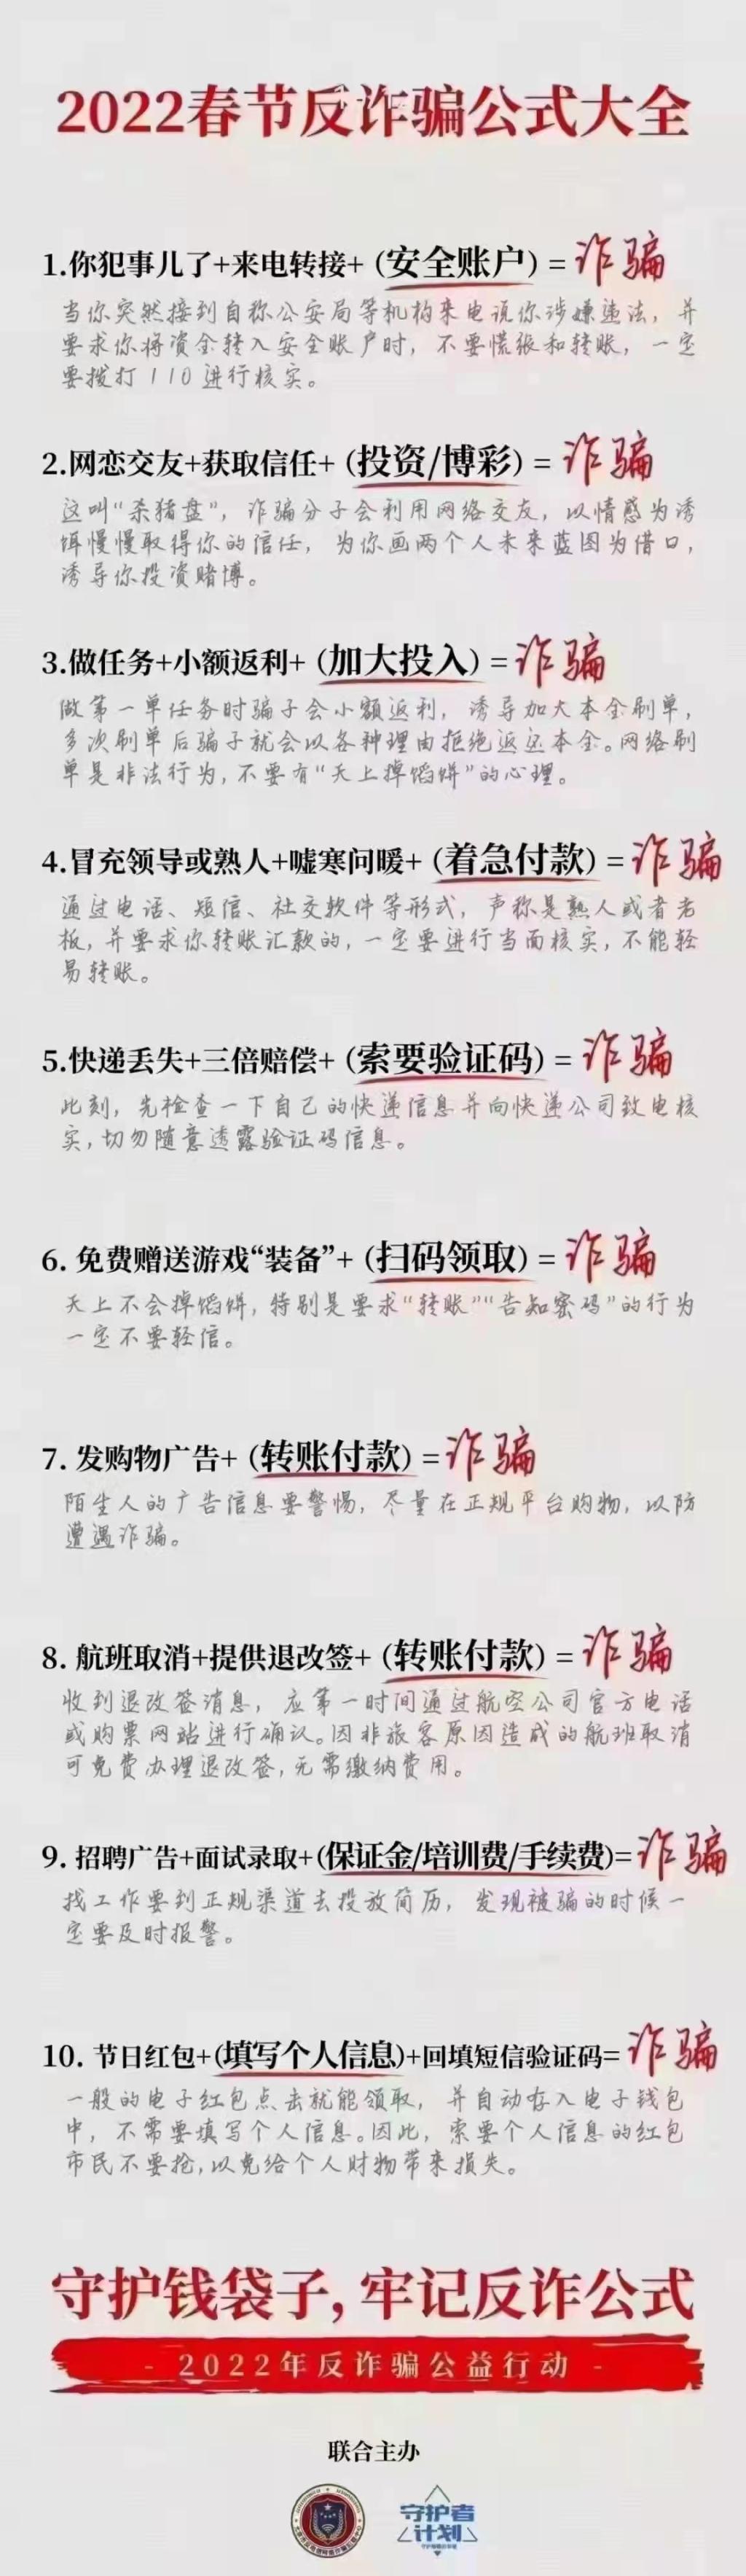 2022春节反诈骗公式大全
1.你犯事儿了+来电转接+ (安全账户) = 诈骗
当你突然接到自称公安局等机构来电说你涉嫌违法，并
要求你将资金转入安全账户时，不要慌张和转账，一定
要拨打110进行核实。
2.网恋交友+获取信任+ (投资/博彩) = 诈骗
这叫“杀猪盘”，诈骗分子会利用网络交友，以情感为诱
饵慢慢取得你的信任，为你画两个人未来蓝图为借口，
诱导你投资赌博。
3.做任务+小额返利+ (加大投入) = 诈骗
做第一单任务时骗子会小额返利，诱导加大本金刷单，
多次刷单后骗子就会以各种理由拒绝返还本金。网络刷
单是非法行为，不要有“天上掉馅饼”的心理。
4.冒充领导或熟人+嘘寒问暖+ (着急付款) = 诈骗
通过电话、短信、社交软件等形式，声称是熟人或者老
板，并要求你转账汇款的，一定要进行当面核实，不能轻
易转账。
5.快递丢失+三倍赔偿+ (索要验证码) = 诈骗
此刻，先检查一下自己的快递信息并向快递公司致电核
实，切勿随意透露验证码信息。
6. 免费赠送游戏“装备”+ (扫码领取) = 诈骗
天上不会掉馅饼，特别是要求“转账”“告知密码”的行为
一定不要轻信。
7. 发购物广告+ (转账付款) = 诈骗
陌生人的广告信息要警惕，尽量在正规平台购物，以防
遭遇诈骗。
8. 航班取消+提供退改签+ (转账付款) = 诈骗
收到退改签消息，应第一时间通过航空公司官方电话
或购票网站进行确认。因非旅客原因造成的航班取消
可免费办理退改签，无需缴纳费用。
9. 招聘广告+面试录取+(保证金/培训费/手续费)= 诈骗
找工作要到正规渠道去投放简历，发现被骗的时候一
定要及时报警。
10. 节日红包+(填写个人信息)+回填短信验证码= 诈骗
一般的电子红包点击就能领取，并自动存入电子钱包
中，不需要填写个人信息。因此，索要个人信息的红包
市民不要抢，以免给个人财物带来损失。
守护钱袋子，牢记反诈公式
- 2022年反诈骗公益行动 -
联合主办
守护者
计划